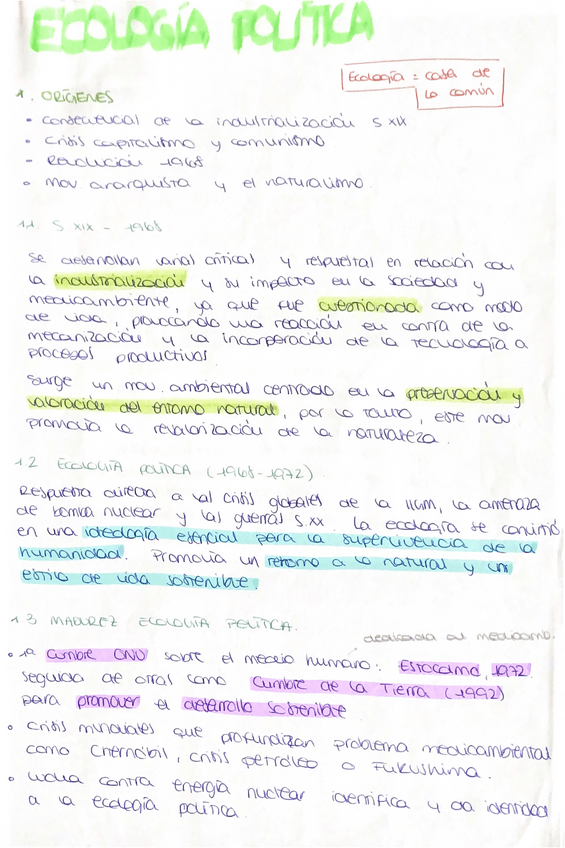 ECOLOGÍA POLÍTICA
Ecología = casa de
lo común
1. ORÍGENES
• consecuencias de la industrialización S XIX
• Crisis capitalismo y comunismo
- Revolución 1968
• Mov anarquista y el naturalismo.
1.1. S XIX - 1968
Se desarrollan varias críticas y respuestas en relación con
la industrialización y su impacto en la sociedad y
medioambiente, ya que fue cuestionada como modo
de vida, provocando una reacción en contra de la
mecanización y la incorporación de la tecnología a
procesos productivos.
Surge un mov. ambiental centrado en la preservación y
valoración del entorno natural, por lo tanto, este mov
promovía la revalorización de la naturaleza.
1.2 ECOLOGÍA POLÍTICA (1968-1972)
Respuesta directa a las crisis globales de la IIGM, la amenaza
de bomba nuclear y las guerras S.XX. La ecología se convirtió
en una ideología esencial para la supervivencia de la
humanidad. Promovía un retorno a lo natural y un
estilo de vida sostenible.
1.3 MADUREZ ECOLOGÍA POLÍTICA.
dedicada al medioamb.
• 1ª Cumbre ONU sobre el medio humano: Estocolmo, 1972.
Seguida de otras como Cumbre de la Tierra (1992)
para promover el desarrollo sostenible
• Crisis mundiales que profundizan problema medioambiental
como Chernóbil, crisis petróleo o Fukushima.
• Lucha contra energía nuclear identifica y da identidad
a la ecología política.